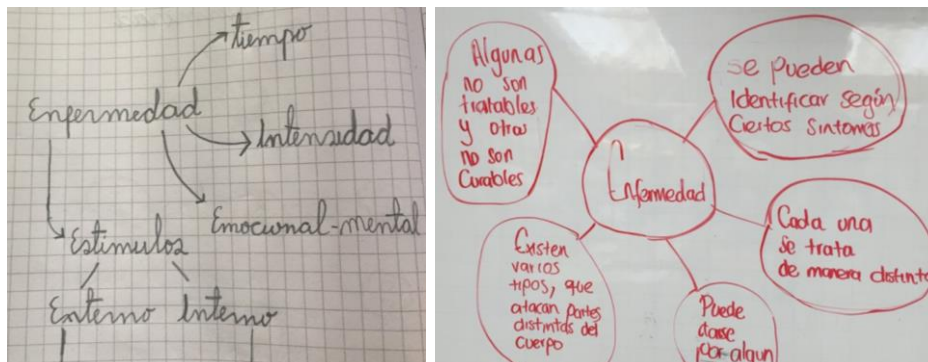 tiempo
Enfermedad
Intensidad
Emocional-mental
Estimulos
Externo Interno
Algunas
no son
tratables
y otras
no son
Curables
Se pueden
Identificar según
Ciertos Sintomas
Enfermedad
Cada una
se trata
de manera distinta
Existen
varios
tipos, que
atacan partes
distintas del
cuerpo
Puede
darse
por algun